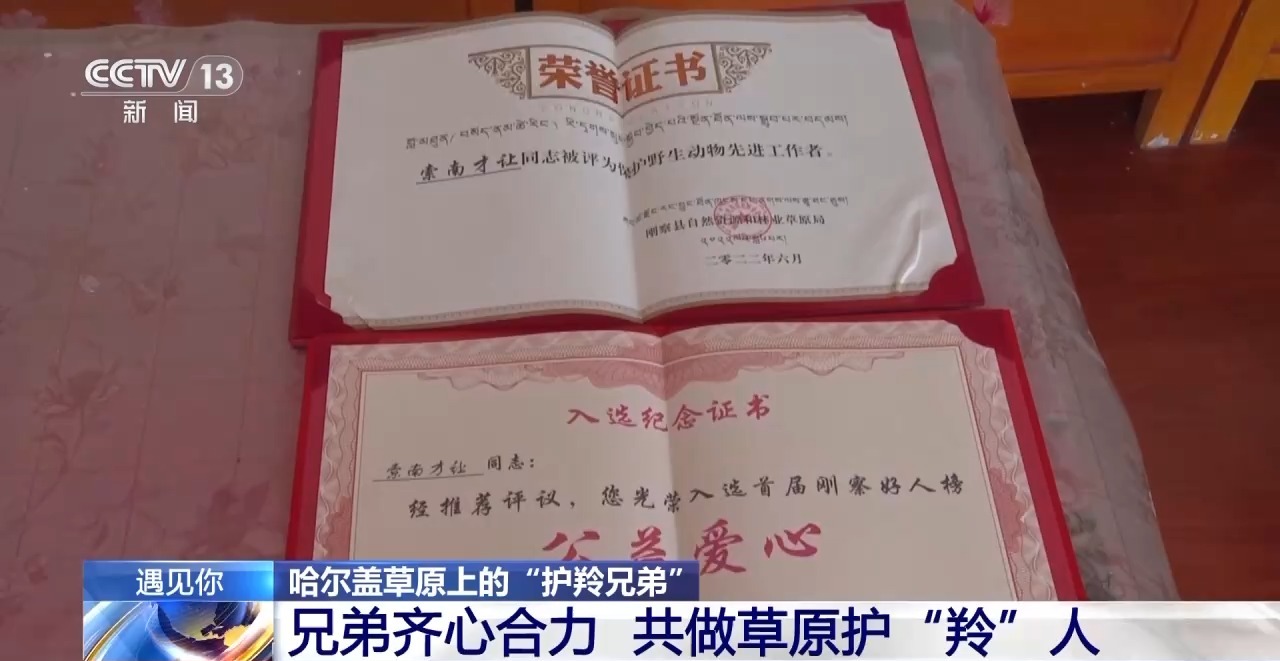 CCTV 13
新闻
荣誉证书
索南才让同志被评为保护野生动物先进工作者。
刚察县自然资源和林业草原局
二零二二年六月
入选纪念证书
索南才让 同志：
经推荐评议，您光荣入选首届刚察好人榜
公益爱心
遇见你
哈尔盖草原上的“护羚兄弟”
兄弟齐心合力 共做草原护“羚”人